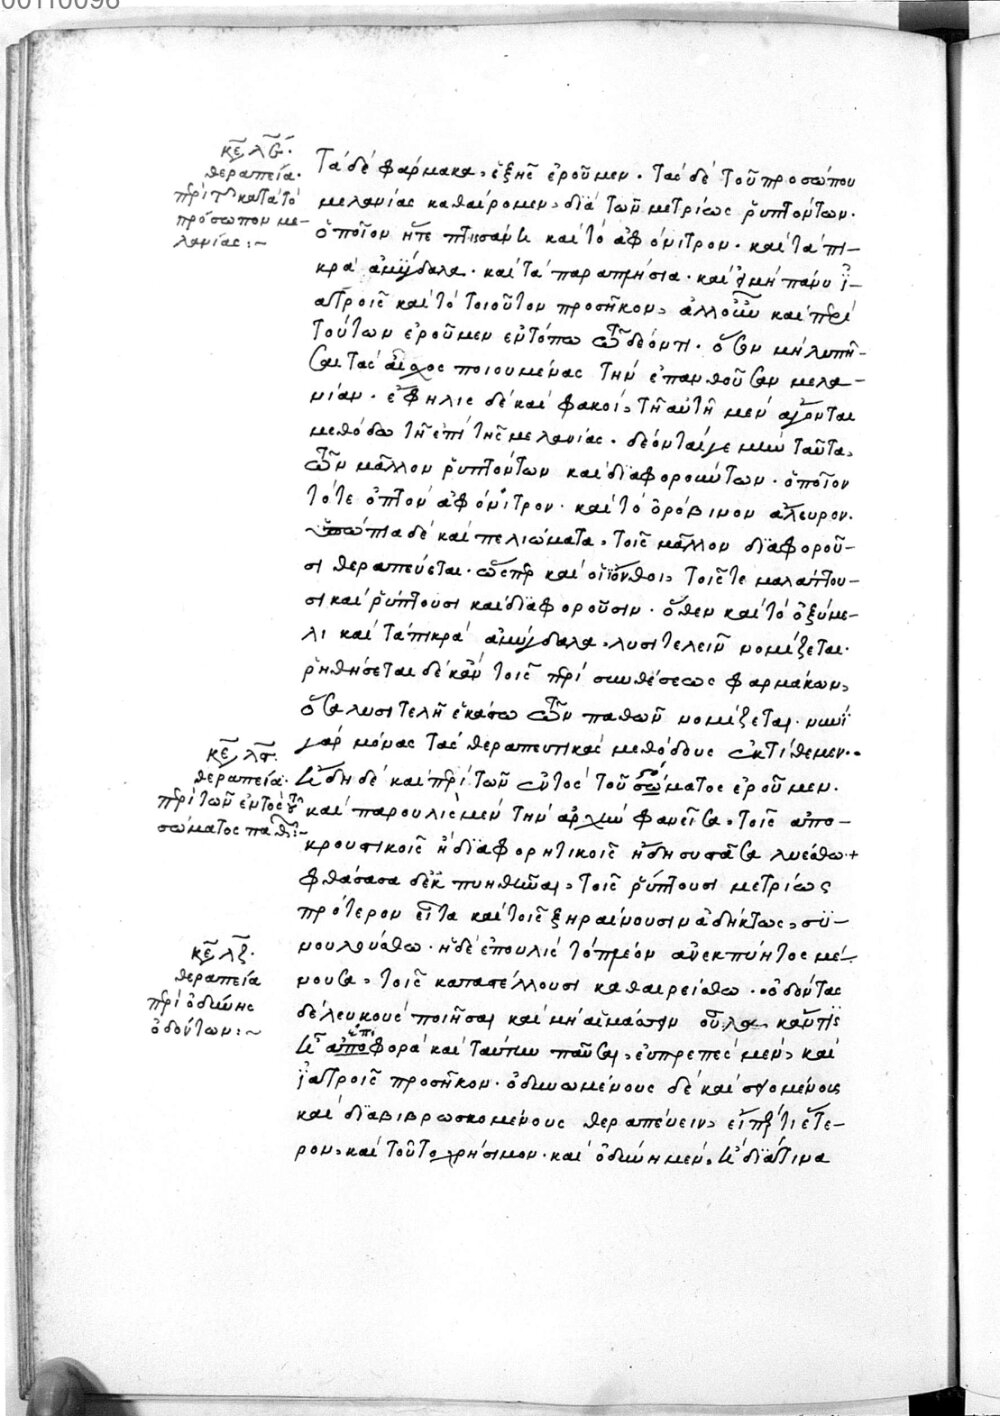 00110096
κε, λϛ.
θεραπεία
περὶ τῆς κατὰ τὸ
πρόσωπον με-
λανίας:~
Τὰ δὲ φάρμακα, ἑξῆς ἐροῦμεν. τὰς δὲ τοῦ προσώπου
μελανίας καθαίρομεν, διὰ τῶν μετρίως ῥυπτόντων.
ὁποῖον ἥτε πτισάνη καὶ τὸ ἀφόνιτρον. καὶ τὰ πι-
κρὰ ἀμύγδαλα. καὶ τὰ παραπλήσια. καὶ εἰ μὴ πάνυ ἰ-
ατροῖς καὶ τὸ τοιοῦτον προσῆκον, ἀλλ' οὖν καὶ περὶ
τούτων ἐροῦμεν ἐν τόπω τῶ δέοντι. ὅσον μὴ λυπῆ-
σαι τὰς αἶσχος ποιουμένας τὴν ἐπανθοῦσαν μελα-
νίαν. ἐφήλις δὲ καὶ φακοὶ, τῆ αὐτῆ μὲν ἄγονται
μεθόδω τῆ ἐπὶ τῆς μελανίας. δέονται γε μὴν ταῦτα,
τῶν μᾶλλον ῥυπτόντων καὶ διαφορούντων. ὁποῖον
τότε ὀπτὸν ἀφόνιτρον. καὶ τὸ ὀρόβινον ἄλευρον.
ὑπώπια δὲ καὶ πελιώματα, τοῖς μᾶλλον διαφοροῦ-
σι θεραπεύεται. ὥσπερ καὶ οἱ ἴονθοι, τοῖς τε μαλάττου-
σι καὶ ῥύπτουσι καὶ διαφοροῦσιν. ὅθεν καὶ τὸ ὀξύμε-
λι καὶ τὰ πικρὰ ἀμύγδαλα, λυσιτελεῖν νομίζεται.
ῥηθήσεται δὲ κἂν τοῖς περὶ συνθέσεως φαρμάκων,
ὅσα λυσιτελῆ ἑκάστω τῶν παθῶν νομίζεται. νυνὶ
γὰρ μόνας τὰς θεραπευτικὰς μεθόδους ἐκτίθεμεν..
κε, λϛ.
θεραπεία
περὶ τῶν ἐντὸς τοῦ
σώματος παθ:~
ἤδη δὲ καὶ περὶ τῶν ἐντὸς τοῦ στόματος ἐροῦμεν.
καὶ παρουλὶς μὲν τὴν ἀρχὴν φανεῖσα, τοῖς ἀπο-
κρουστικοῖς ἢ διαφορητικοῖς ἤδη συστᾶσα λυέσθω+
φθάσασα δ' ἐκπυηθῆναι, τοῖς ῥύπτουσι μετρίως
πρότερον εἶτα καὶ τοῖς ξηραίνουσιν ἀδήκτως, συ-
νουλούσθω. ἡ δὲ ἐπουλὶς τὸ πλέον ἀνεκπύητος μέ-
νουσα, τοῖς καταστέλλουσι καθαιρείσθω.. ὀδόντας
κε, λζ.
θεραπεία
περὶ ὀδύνης
ὀδόντων:~
δὲ λευκοὺς ποιῆσαι καὶ μὴ αἱμάσσειν οὖλα, κἂν τις
ἐπι
ᾖ ἀποφορὰ καὶ ταύτην παῦσαι, εὐπρεπὲς μὲν, καὶ
ἰατροῖς προσῆκον. ὀδυνωμένους δὲ καὶ σειομένους
καὶ διαβιβρωσκομένους θεραπεύειν, εἴπερ τι ἕτε-
ρον, καὶ τοῦτο χρήσιμον. καὶ ὀδύνη μὲν, ἢ διά τινα